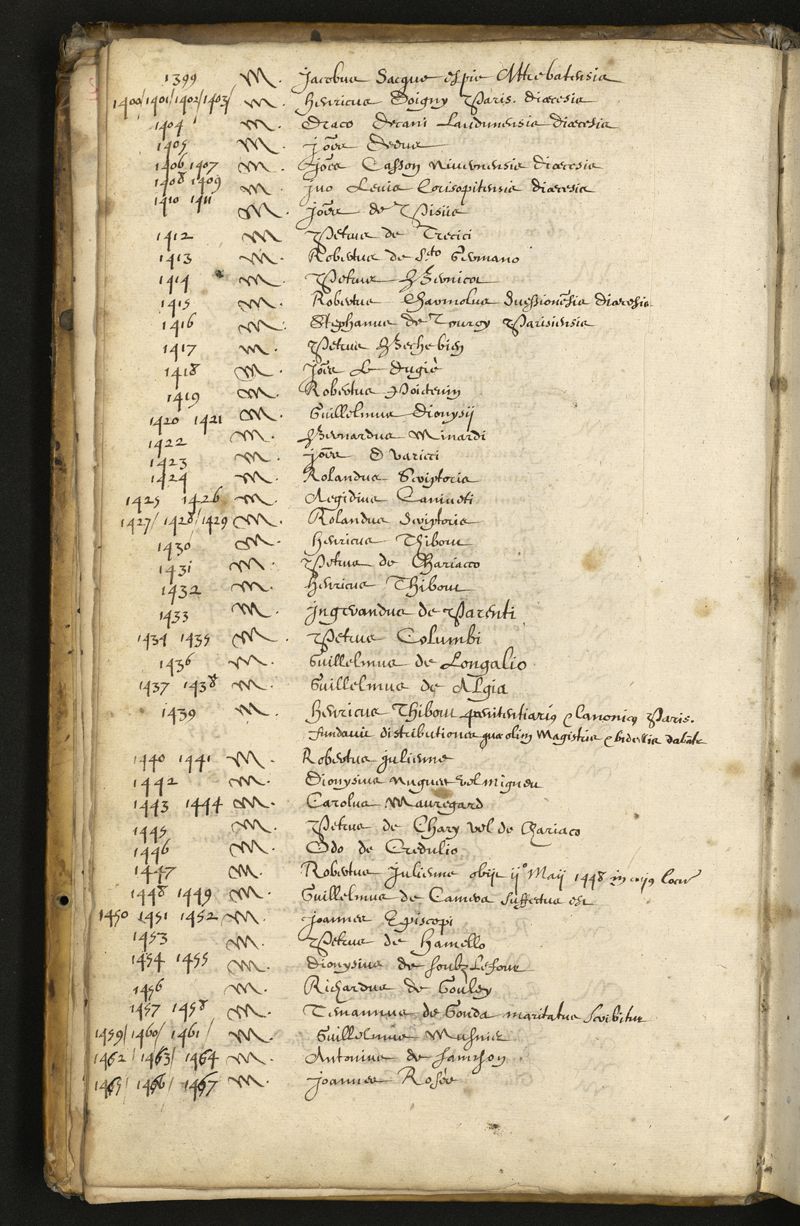 1399 M. Jacobus Sacque espie Attrebatensis
1400/1401/1402/1403/ M. Henricus Doigny Paris. diœcesis
1404 M. Draco Decani Laudunensis diœcesis
1405 M. Joēs
1406 1407 M. Joēs Casson Nivernensis diœcesis
1408 1409 M. Ivo Levis Corisopitensis diœcesis
1410 1411 M. Joēs de Pisiis
1412 M Petrus de Trecici
1413 M. Robertus de Scto Germano
1414 M. Petrus
1415 M. Robertus Charmolus Suessionēsis diœcesis
1416 M. Stephanus de Tourgy Parisiensis
1417 M. Petrus
1418 M. Joēs Le
1419 M. Robertus Poictevin
1420 1421 M. Guillelmus Dionysij
1422 M. Bernardus Minardi
1423 M. Joēs
1424 M. Rolandus Scriptoris
1425 1426 M. Aegidius Caniveti
1427/ 1428/ 1429 M. Rolandus Scriptoris
1430 M. Henricus Thibout
1431 M. Petrus de Chariacco
1432 M. Henricus Thibout
1433 M. Ingerandus de Parenti
1434 1435 M. Petrus Columbi
1436 M. Guillelmus de Longalio
1437 1438 M. Guillelmus de Algia
1439 M. Henricus Thibout penitentiariꝰ & Canonicꝰ Paris.
fundavit distributiones quæ olim Magistris & bidellis dabāt
1440 1441 M. Robertus Julienne
1442 M. Dionysius vel migneu
1443 1444 M. Carolus Mauregard
1445 M. Petrus de Chary vel de Cariaco
1446 M. Odo de Credulio
1447 M. Robertus Julienne obijt ijo Maij 1448 in cujꝰ locū
1448 1449 M. Guillelmus de Camera suffectus est
1450 1451 1452 M. Joannes Episcopi
1453 M. Petrus de Hamello
1454 1455 M. Dionysius de
1456 M. Richardus de Gouley
1457 1458 M. Temannus de Gouda maritatus scribitur
1459/ 1460/ 1461/ M. Guillelmus Musnier
1462/ 1463/ 1464 M. Antonius de Samson
1465/ 1466/ 1467 M. Joannes Rosée